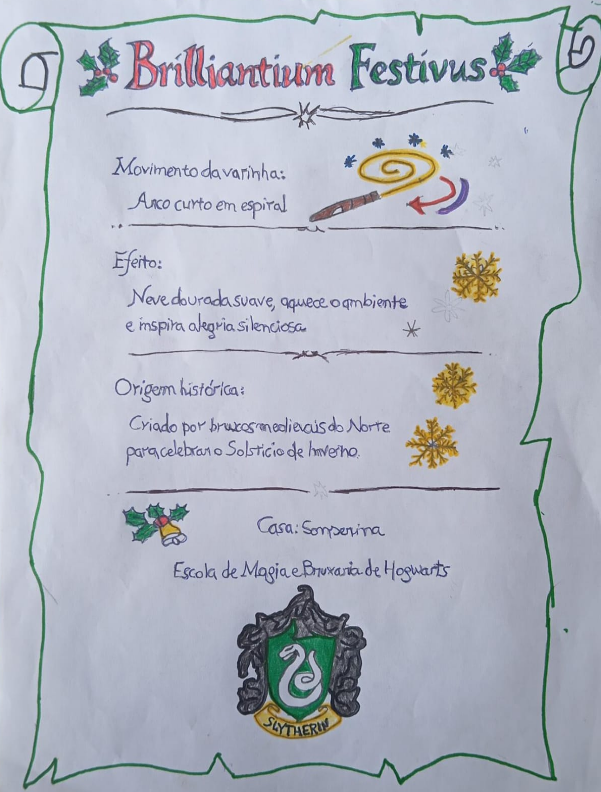 Brilliantium Festivus
Movimento da varinha:
Arco curto em espiral
Efeito:
Neve dourada suave, aquece o ambiente
e inspira alegria silenciosa
Origem histórica:
Criado por bruxos medievais do Norte
para celebrar o Solstício de Inverno.
Casa: Sonserina
Escola de Magia e Bruxaria de Hogwarts
SLYTHERIN